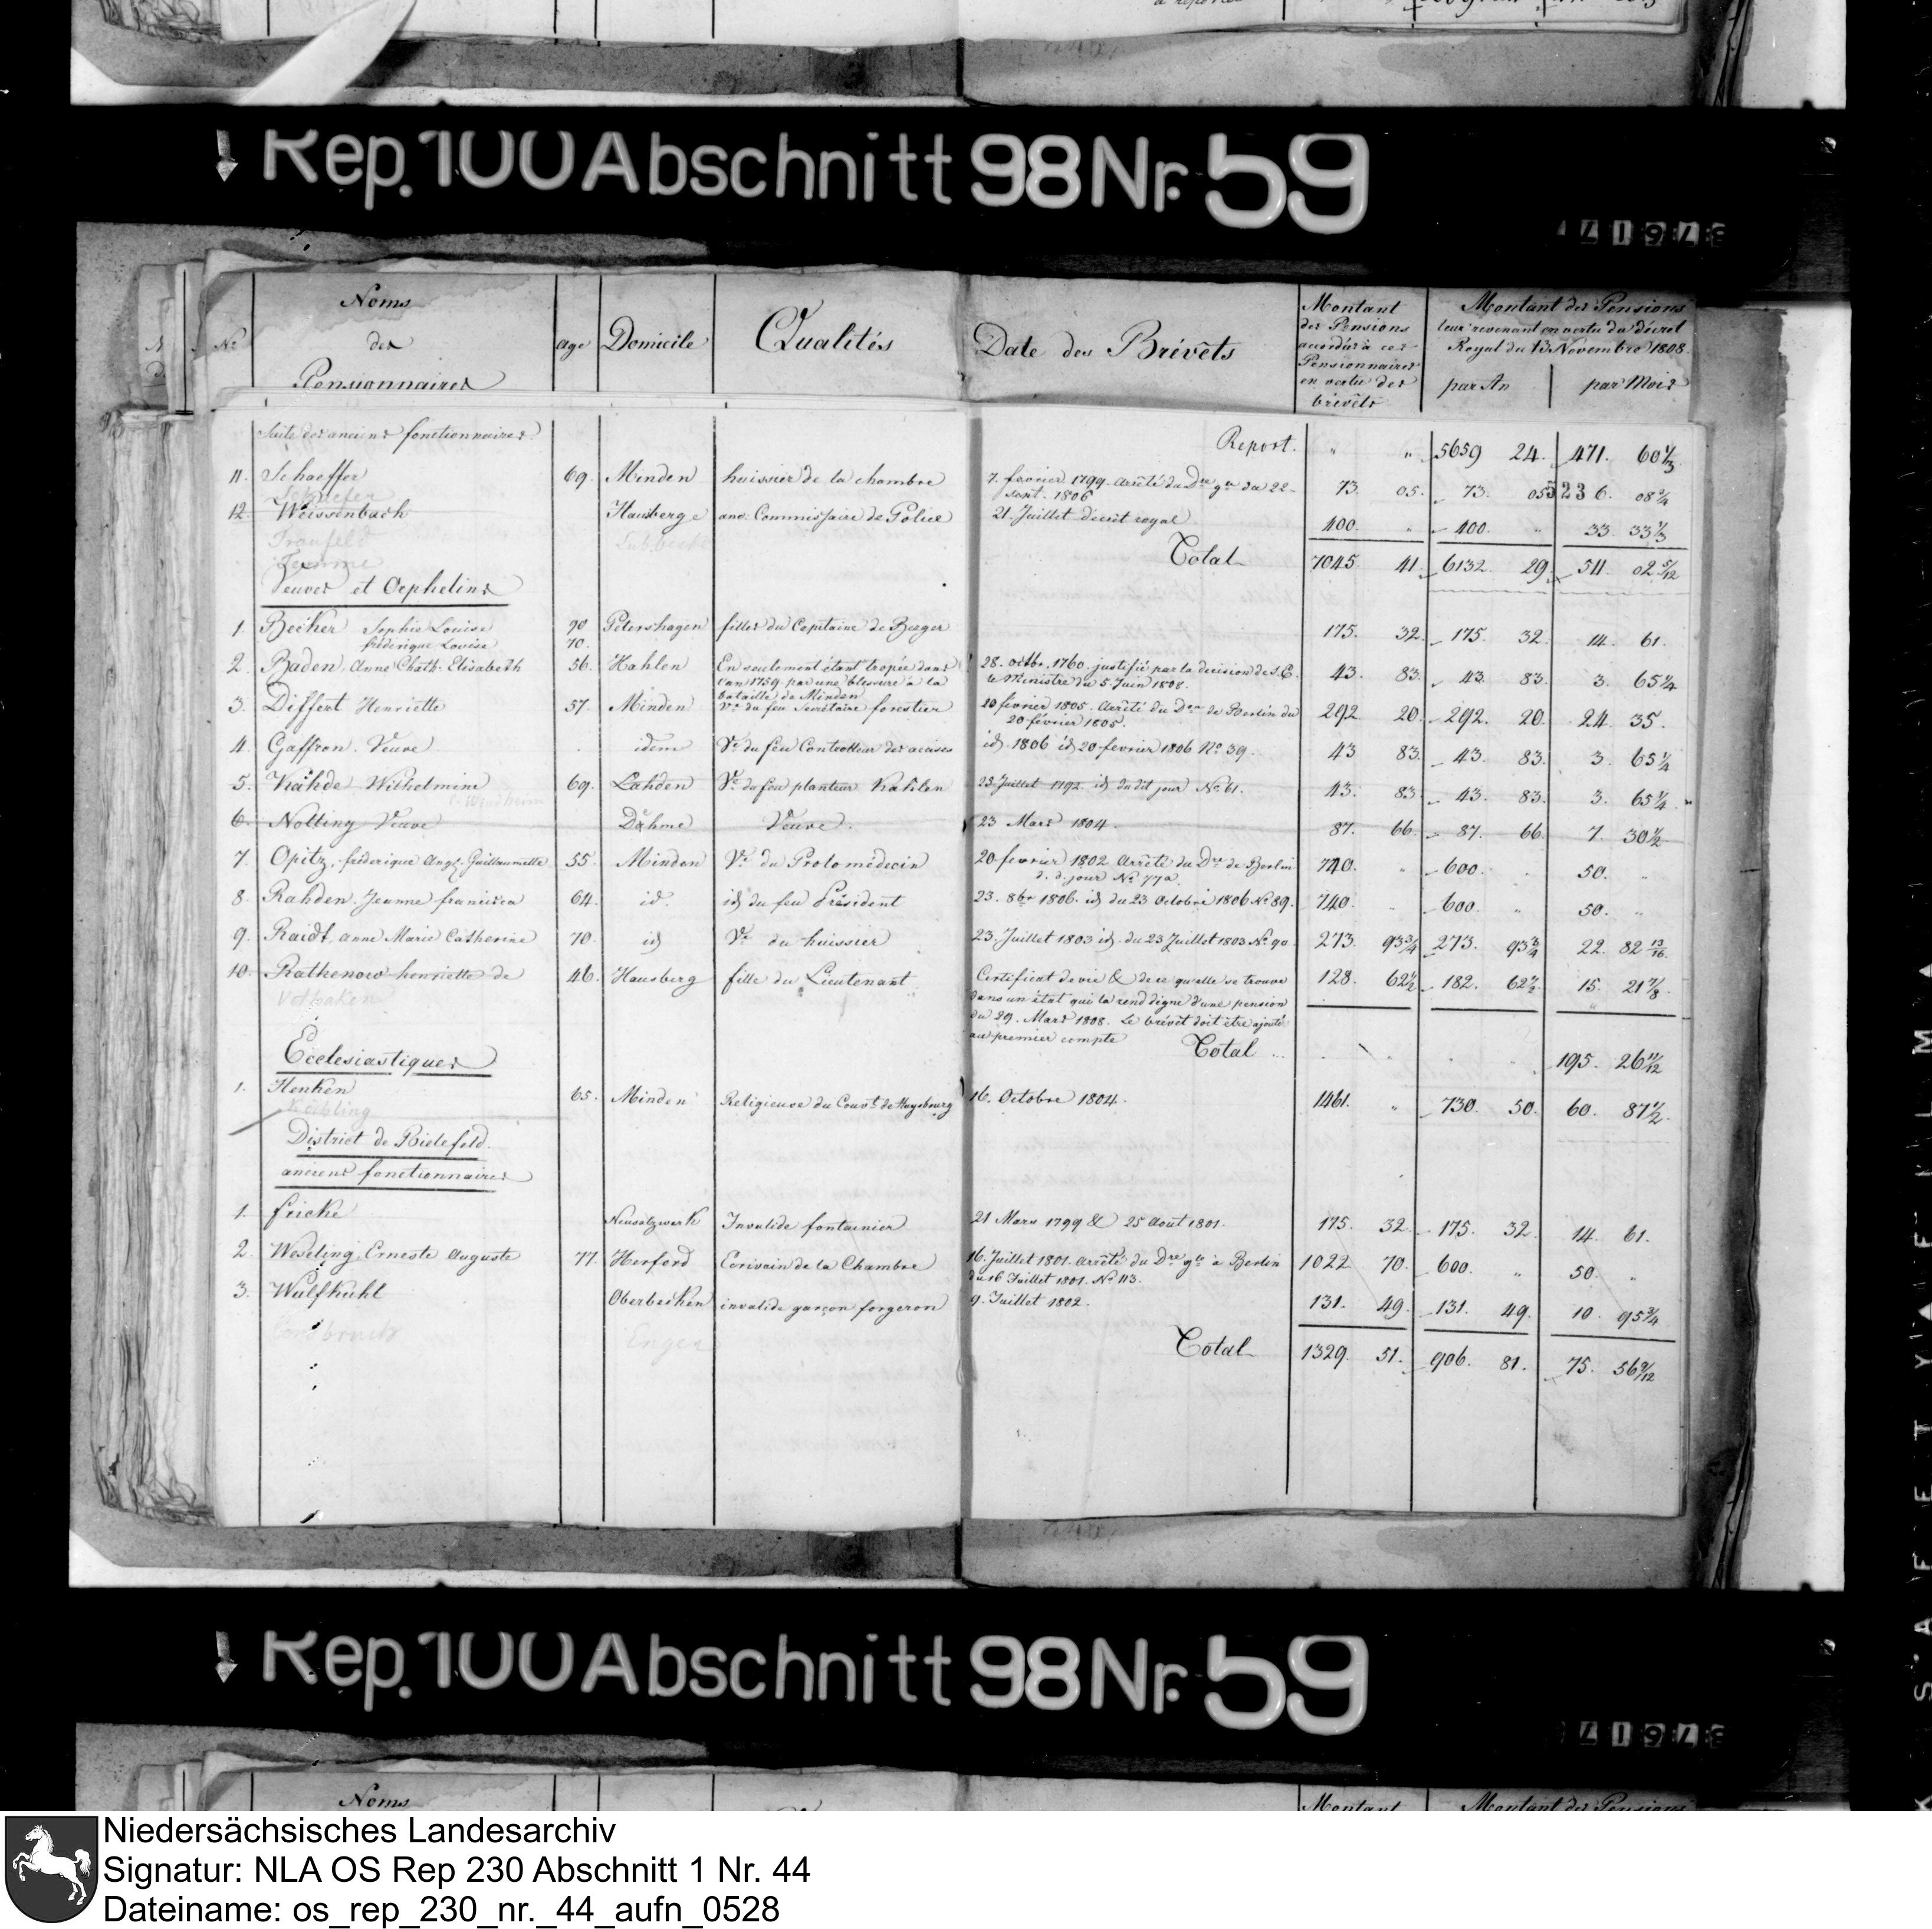 Rep. 100 Abschnitt 98 Nr. 59
Nº
Noms
des
Pensionnaires
age
Domicile
Qualités
Date des Brévêts
Montant
des Pensions
accordés à ces
Pensionnaires
en vertu des
brévêts
Montant des Pensions
leur revenant en vertu du décret
Royal du 13 Novembre 1808.
par An
par Mois
Suite des anciens fonctionnaires.
Report. " " 5659 24. 471. 60 1/3
11. Schaeffer 69. Minden huissier de la chambre 7. fevrier 1799. Arrêté du Dre gn du 22 73. 05. 73. 05 6. 08 3/4
Schaefer
Sept. 1806
12. Weissenbach Hausberge anc. Commissaire de Police 21. Juillet decret royal 400. " 400. " 33. 33 1/3
Total 7045. 41. 6132. 29. 511. 02 5/12
Femme
Veuves et Orphelins
1. Becker Sophie Louise 90 Petershagen filles du Capitaine de Berger 175. 32. 175. 32. 14. 61.
fréderique Louise 70.
2. Baden Anne Chath: Elisabeth 56. Hahlen En seulement étant tropée dans 28. octbr. 1760. justifié par la decision de S.E. 43. 83. 43. 83. 3. 65 1/4
l'an 1759 par une blessure à la le Ministre du 5. Juin 1808.
bataille de Minden
3. Differt Henriette 57. Minden Ve du feu Secrétaire forestier 20 fevrier 1805. Arrêté du Dre de Berlin du 292. 20. 292. 20. 24. 35.
20 février 1805.
4. Gaffron. Veuve idem Ve du feu Controlleur des accises id. 1806 id 20 fevrier 1806 Nº 39. 43 83. 43. 83. 3. 65 1/4
5. Kähde Wilhelmine 69. Lahden Ve du feu planteur Kahlen 23 Juillet 1792. id du dit jour Nº 61. 43. 83. 43. 83. 3. 65 1/4
6. Nolting Veuve Dehme Veuve. 23 Mars 1804. 87. 66. 87. 66. 7. 30 1/2
7. Opitz, fréderique Aug. Guillaumette 55. Minden Ve du Protomédecin 20 fevrier 1802 Arrêté du Dre de Berlin 740. " 600. " 50. "
d. d. jour Nº 77a.
8. Rahden. Jeanne francisca 64. id. id du feu Président 23. 8br 1806. id du 23 Octobre 1806 Nº 89. 740. " 600. " 50. "
9. Raidt, anne Marie Catherine 70. id Ve du huissier 23. Juillet 1803 id. du 23 Juillet 1803 Nº 90 273. 93 3/4 273. 93 3/4 22. 82 13/16.
10. Rathenow henriette de 46. Hausberg fille du Lieutenant Certificat de vie & de ce qu'elle se trouve 128. 62 1/2 182. 62 1/2 15. 21 7/8.
dans un état qui la rend digne d'une pension
du 29. Mars 1808. Le brévêt doit être ajouté
au premier compte Total 195. 26 11/12
Ecclesiastiques
1. Henken 65. Minden Religieuse du Couvt de Huysbourg 16. Octobre 1804. 1461. " 730. 50. 60. 87 1/2.
District de Bielefeld.
anciens fonctionnaires
1. fricke Neusalzwerk Invalide fontainier 21 Mars 1799 & 25 Aout 1801. 175. 32. 175. 32. 14. 61.
2. Weseling Erneste Auguste 77. Herford Ecrivain de la Chambre 16. Juillet 1801. Arrêté du Dre gle à Berlin 1022. 70. 600. " 50. "
du 16 Juillet 1801. Nº 113.
3. Wulfkuhl Oberbecken invalide garçon forgeron 9. Juillet 1802. 131. 49. 131. 49. 10. 95 3/4
Enger
Total 1329. 51. 906. 81. 75. 56 9/12
Rep. 100 Abschnitt 98 Nr. 59
Noms
Montant
Montant des Pensions
Niedersächsisches Landesarchiv
Signatur: NLA OS Rep 230 Abschnitt 1 Nr. 44
Dateiname: os_rep_230_nr._44_aufn_0528